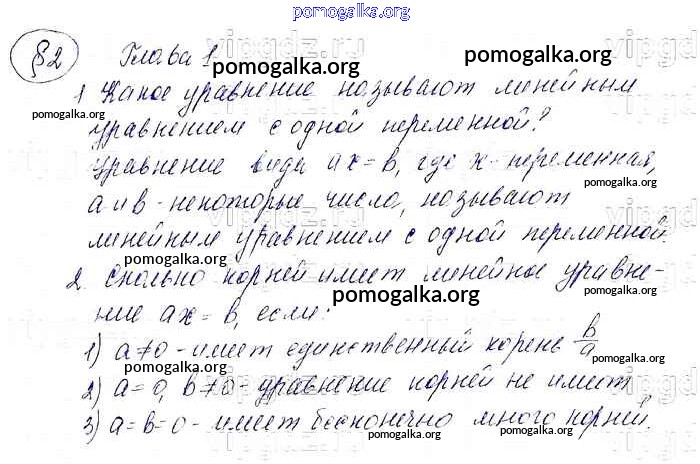 pomogalka.org
§2 Глава 1
pomogalka.org
1 Какое уравнение называют линейным
pomogalka.org
уравнением с одной переменной?
уравнение вида ax = b, где x - переменная,
pomogalka.org
a и b - некоторые числа, называют
линейным уравнением с одной переменной.
2. Сколько корней имеет линейное уравне-
pomogalka.org
ние ax = b, если:
1) a ≠ 0 - имеет единственный корень b/a
pomogalka.org pomogalka.org
2) a = 0, b ≠ 0 - уравнение корней не имеет
pomogalka.org
3) a = b = 0 - имеет бесконечно много корней.
pomogalka.org pomogalka.org